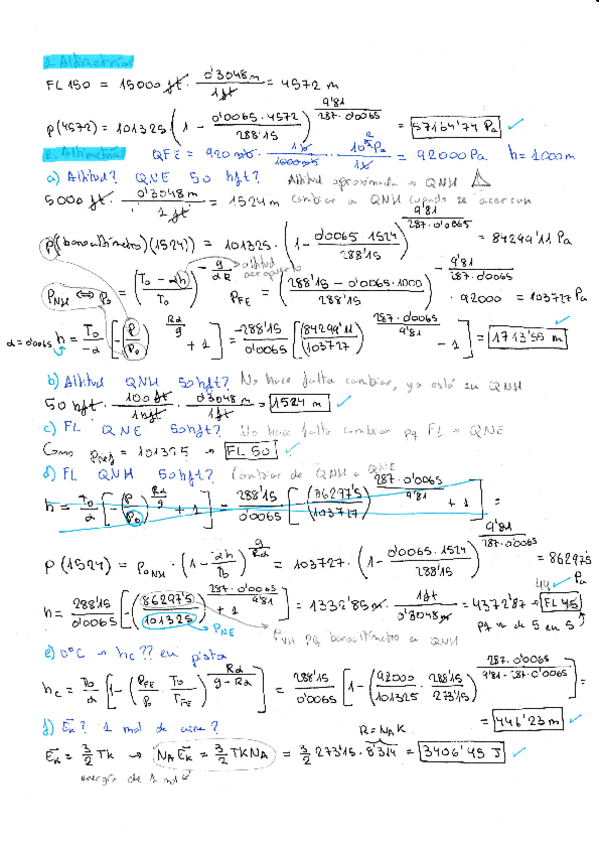 1. Altimetría
FL 150 = 15000 ft · 0'3048 m / 1 ft = 4572 m
p(4572) = 101325 (1 - 0'0065 · 4572 / 288'15)^(9'81 / 287 · 0'0065) = 57164'74 Pa
2. Altimetría QFE = 920 mb · 1 b / 1000 mb · 10^5 Pa / 1 b = 92000 Pa h = 1000 m
a) Altitud? QNE 50 hft? Altitud aproximada → QNH
5000 ft · 0'3048 m / 1 ft = 1524 m cambiar a QNH cuando se acercan
p(baroaltímetro)(1524) = 101325 · (1 - 0'0065 1524 / 288'15)^(9'81 / 287 · 0'0065) = 84299'11 Pa
altitud aeropuerto
P_NH ⇔ P_0 = (T_0 - αh / T_0)^(- g / αR) P_FE = (288'15 - 0'0065 · 1000 / 288'15)^(- 9'81 / 287 · 0'0065) · 92000 = 103727 Pa
α = 0'0065 h = T_0 / -α [-(P / P_0)^(Rα / g) + 1] = -288'15 / 0'0065 [(84299'11 / 103727)^(287 · 0'0065 / 9'81) - 1] = 1713'55 m
b) Altitud QNH 50 hft? No hace falta cambiar, ya está en QNH
50 hft · 100 ft / 1 hft · 0'3048 m / 1 ft = 1524 m
c) FL QNE 50 hft? No hace falta cambiar pq FL = QNE
Como Pref = 101325 → FL 50
d) FL QNH 50 hft? Cambiar de QNH a QNE
h = T_0 / α [-(P / P_0)^(Rα / g) + 1] = 288'15 / 0'0065 [-(86297'5 / 103727)^(287 · 0'0065 / 9'81) + 1] =
p(1524) = P_0NH · (1 - αh / T_0)^(g / Rα) = 103727 · (1 - 0'0065 · 1524 / 288'15)^(9'81 / 287 · 0'0065) = 86297'5 Pa
h = 288'15 / 0'0065 [-(86297'5 / 101325)^(287 · 0'0065 / 9'81) + 1] = 1332'85 m · 1 ft / 0'3048 m = 4372'87 → FL 45
P_NE P_NH pq baroaltímetro en QNH pq va de 5 en 5
e) 0°C → hc ?? en pista
h_c = T_0 / α [1 - (P_FE / P_0 · T_0 / T_FE)^(Rα / g - Rα)] = 288'15 / 0'0065 [1 - (92000 / 101325 · 288'15 / 273'15)^(287 · 0'0065 / 9'81 - 287 · 0'0065)] =
= 446'23 m
f) E_K? 1 mol de aire? R = N_A K
E_K = 3/2 TK → N_A E_K = 3/2 TKN_A = 3/2 273'15 · 8'314 = 3406'45 J
energía de 1 mol